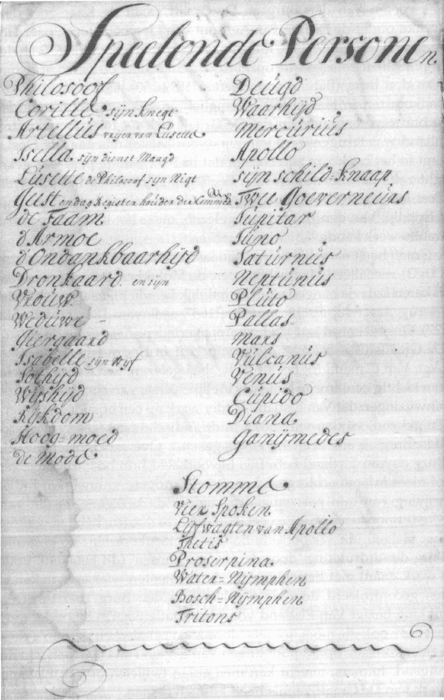 Speelende Personen.
Philosoof
Corille sijn Knegt
Artellus vrijer van Luselle
Isella sijn dienst Maagd
Luselle de Philosoof sijn Nigt
Geest en dag Register houder der
de Faam
d'Armoe
d'Ondankbaarhijd
Dronkaard en sijn
Vrouw
Weduwe
Giergaard
Isabelle sijn Wijf
Sothijd
Wijshijd
Rijkdom
Hoog=moed
de Mode
Deugd
Waarhijd
Mercurius
Apollo
sijn schild-knaap
Twee Goeverneurs
Jupitar
Juno
Saturnus
Neptunus
Pluto
Pallas
Mars
Vulcanus
Venus
Cupido
Diana
Ganijmedes
Stomme
Vier Spoken
Lijfwagten van Apollo
Thetis
Proserpina
Water-Nijmphen
Bosch-Nijmphen
Tritons